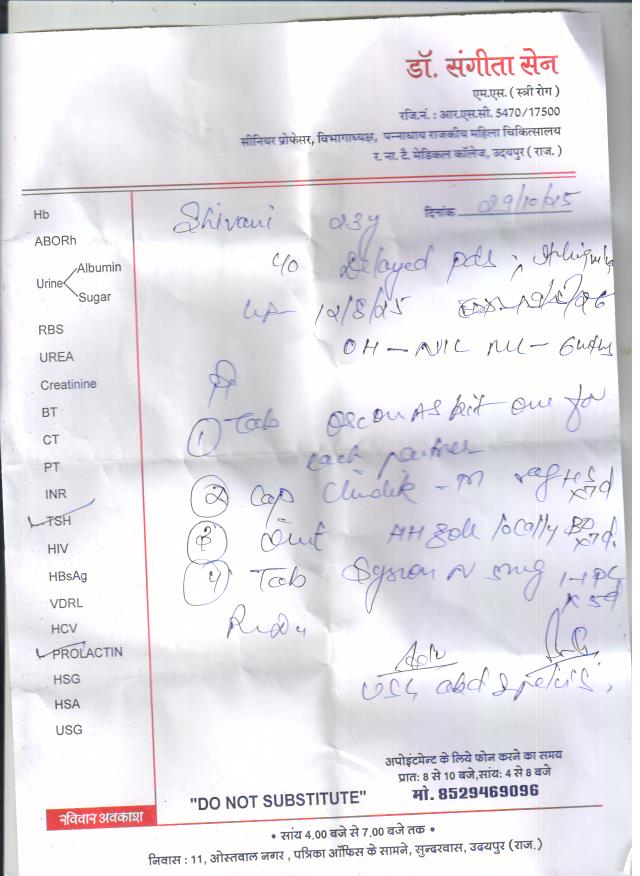 डॉ. संगीता सेन
एम.एस. ( स्त्री रोग )
रजि.नं. : आर.एस.सी. 5470/17500
सीनियर प्रोफेसर, विभागाध्यक्ष, पन्नाधाय राजकीय महिला चिकित्सालय
र. ना. टै. मेडिकल कॉलेज, उदयपुर ( राज. )
Hb
ABORh
Urine Albumin
Sugar
RBS
UREA
Creatinine
BT
CT
PT
INR
TSH
HIV
HBsAg
VDRL
HCV
PROLACTIN
HSG
HSA
USG
रविवार अवकाश
Shivani 23y दिनांक 29/10/25
c/o Delayed pds ;
12/8/25
OH - NIL ML - 6
① Tab kit one for
each partner
② Cap HS x7d
③ Oint locally BD x7d
④ Tab N 5mg x 5d
Adv
USG abd & pelvis
"DO NOT SUBSTITUTE"
अपोइंटमेन्ट के लिये फोन करने का समय
प्रात: 8 से 10 बजे,सांय: 4 से 8 बजे
मो. 8529469096
• सांय 4.00 बजे से 7.00 बजे तक •
निवास : 11, ओस्तवाल नगर , पत्रिका ऑफिस के सामने, सुन्दरवास, उदयपुर ( राज.)